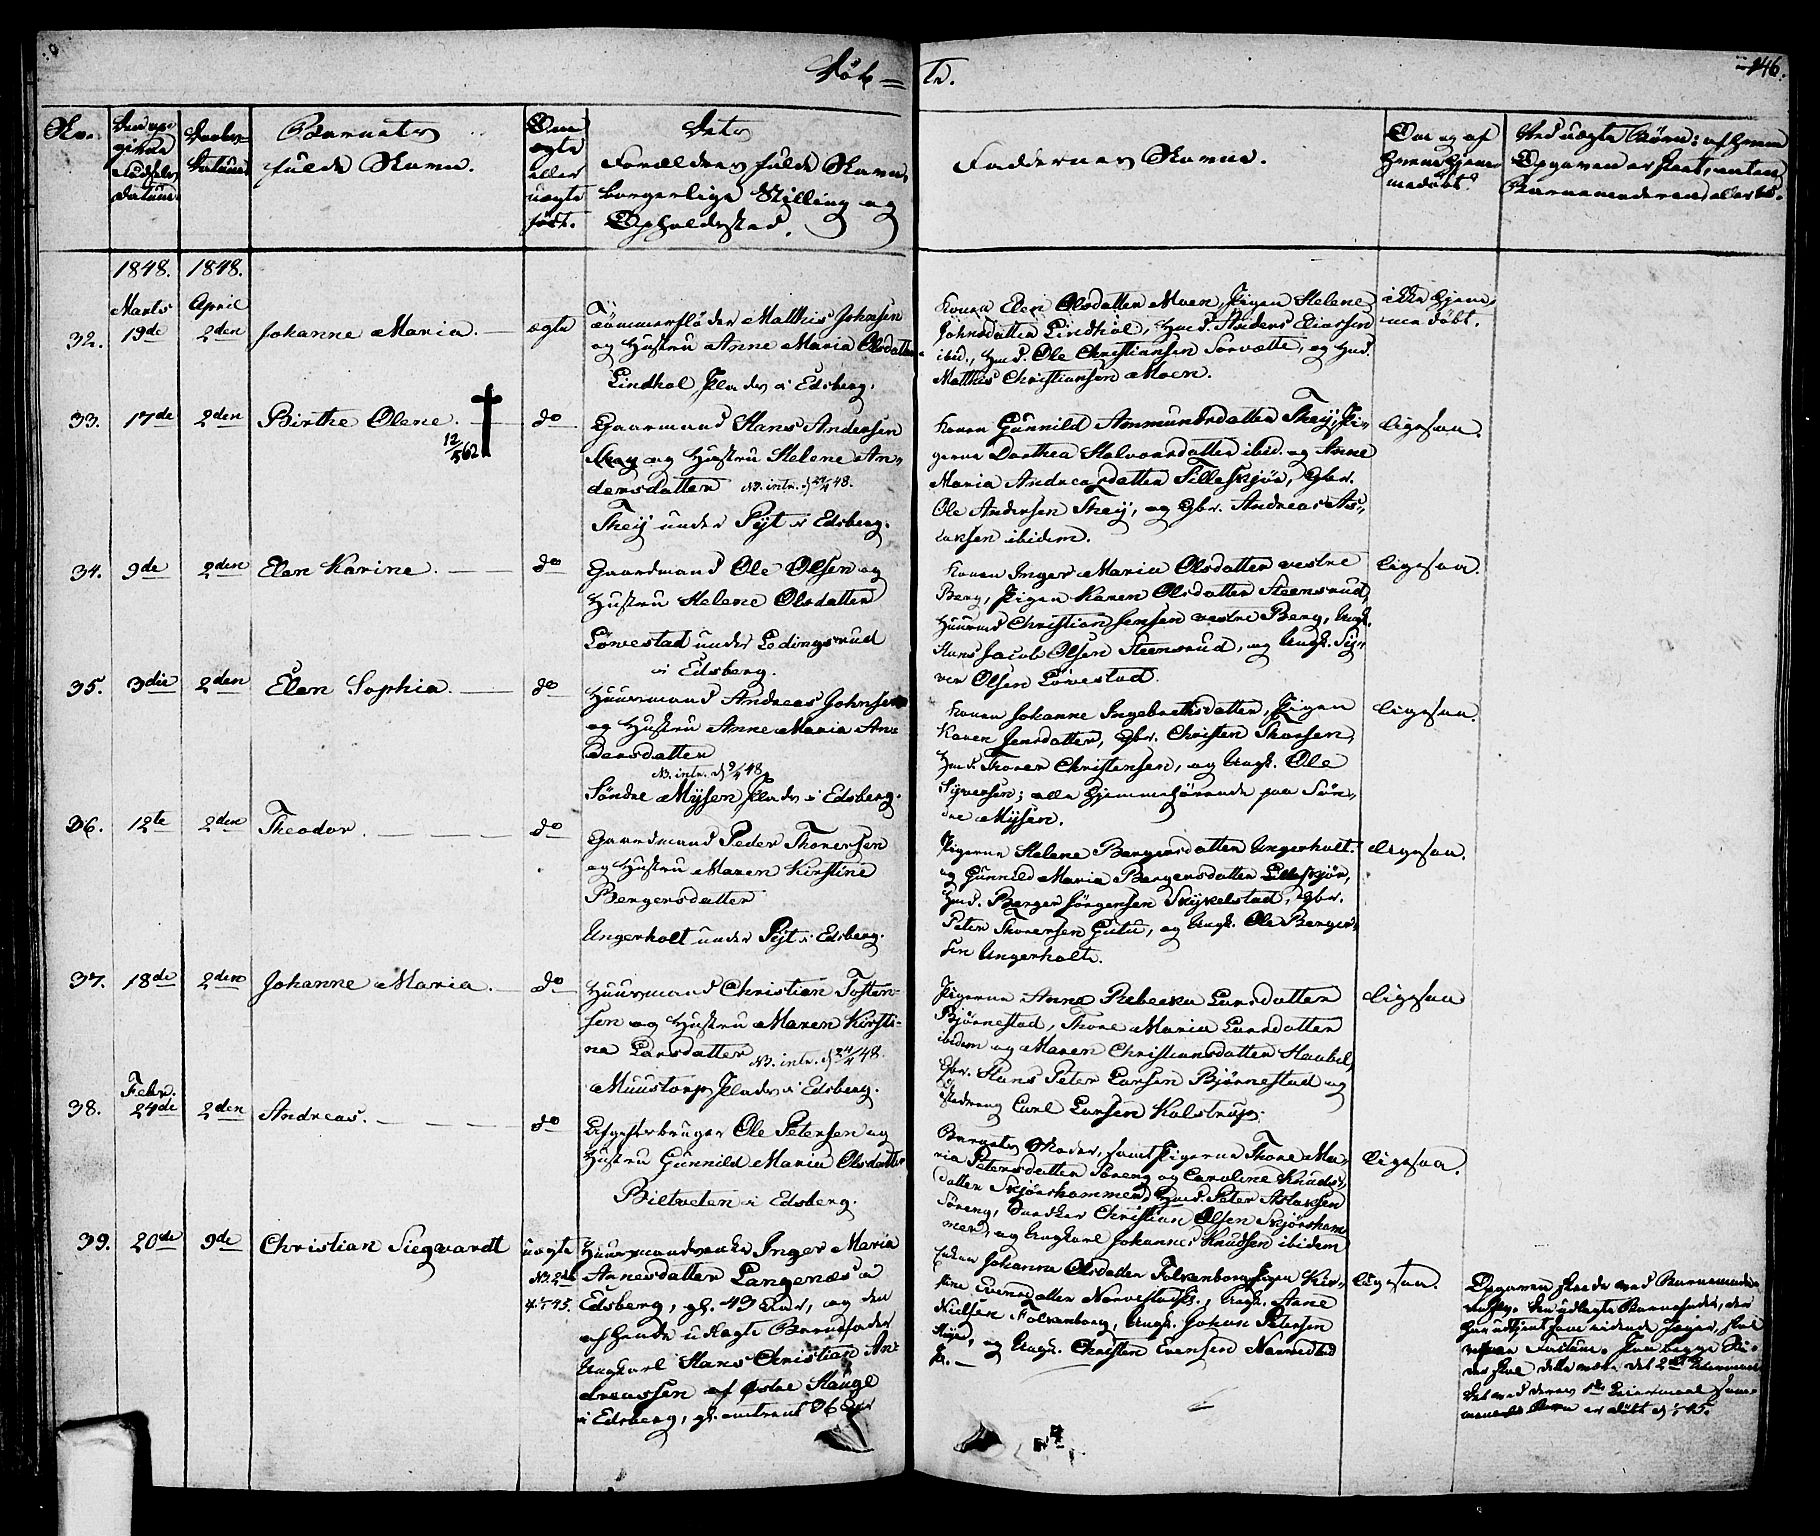 Døb=
te.
146.
No.
Den op-
givne
Fødsels
Datum
Daabs-
Datum
Barnets
fulde Navn.
Om
ægte
eller
uægte
født.
Dets
Forældres fulde Navn,
borgerlige Stilling og
Opholdssted.
Faddernes Navne.
Om og af
hvem hjem-
medøbt?
Ved uægte Børn: af hvem
Opgaven er skeet, enten
Barnemoderen eller
1848.
1848.
Marts
April
32.
19de
2den
Johanne Maria.
ægte
Tømmerfløder Matthis Johnsen
og Hustru Anne Maria Olsdatter
Lindhol, Pladss i Edsberg.
Konen Elen Olsdatter Moen, Pigen Helene
Johnsdatter Lindhol, Hmd. Anders Eliassen
ibid., Hmd. Ole Christiansen Sorvætte, og Hmd.
Matthis Christiansen Moen.
ikke hjem-
medøbt.
33.
17de
2den
Birthe Olene.
12/5 62
do
Gaarmand Hans Andersen
og Hustru Helene An-
dersdatter NB. intr. d 24/4 48.
Theij under Pijt i Edsberg.
Konen Gunnild Ammundsdatter Theij, Pi-
gerne Dorthea Halvorsdatter ibid. og Anne
Maria Andreasdatter Lilleskjør, Gbr.
Ole Andersen Theij, og Gbr. Andreas As-
laksen ibidem.
ligesaa.
34.
9de
2den
Elen Karine.
do
Gaardmand Ole Olsen og
Hustru Helene Olsdatter
Løvestad under Ledingsrud
i Edsberg.
Konen Inger Maria Olsdatter vestre
Berg, Pigen Karen Olsdatter Steensrud,
Huusmd Christian Jensen vestre Berg, Ungk.
Hans Jacob Olsen Steensrud, og Ungk. Sy-
ver Olsen Løvestad.
ligesaa.
35.
3die
2den
Elen Sophia.
do
Huusmand Andreas Johnsen
og Hustru Anne Maria An-
dersdatter
NB. intr. d 9/4 48
Søndre Mysen Plads i Edsberg.
Konen Johanne Ingebrethsdatter, Pigen
Karen Jensdatter, Gbr. Christen Thorsen,
Hmd. Thorer Christensen, og Ungk. Ole
Syversen; alle hjemmehørende paa Søn-
dre Mysen.
ligesaa.
36.
12te
2den
Theodor.
do
Gaardmand Peder Thorersen
og Hustru Maren Kirstine
Bergersdatter
Ungerholt under Pijt i Edsberg.
Pigerne Helene Bergersdatter Ungerholt
og Gunnild Maria Bergersdatter Lilleskjør,
Hmd. Berger Jørgensen Skykelstad, Gbr.
Peter Thorersen Gutu, og Ungk. Ole Berger-
sen Ungerholt.
ligesaa.
37.
18de
2den
Johanne Maria.
do
Huusmand Christian Tosten-
sen og Hustru Maren Kirsti-
ne Larsdatter NB. intr. d 24/4 48.
Muustorp Plads i Edsberg.
Pigerne Anne Rebecka Larsdatter
Bjørnestad, Thore Maria Larsdatter
ibidem og Maren Christiansdatter Haubel,
Gbr. Hans Peter Larsen Bjørnestad og
Carl Larsen Kolstrup.
ligesaa
Febr.
38.
24de
2den
Andreas.
do
Ole Petersen og
Hustru Gunnild Maria Olsdatter
Biltveten i Edsberg.
Barnets Moder, samt Pigerne Thore Ma-
ria Petersdatter Søreng og Caroline Knuds-
datter Skjørshammer, Hmd. Peter Aslaksen
Søreng, Christian Olsen Skjørsham
mer, og Ungkarl Johannes Knudsen ibidem
ligesaa.
39.
20de
9de
Christian Siegvardt
uægte
NB. 2det
Huusmandsenke Inger Maria
Arnesdatter Langenæs i
Edsberg, gl. 43 Aar, og den
af hende udlagte Barnefader
Ungkarl Hans Christian An-
dreassen af Østre Haugl
i Edsberg, gl. omtrent 36 Aar
Enken Johanne Olsdatter Folkenborg, Pigen Kir-
stine Evensdatter Narvestad, Ungk. Arne
Nielsen Folkenborg, Ungk. Johan Petersen
og Ungk. Christen Evensen Narvestad
ligesaa.
Opgaven skeede ved Barnemode-
ren selv. Den udlagte Barnefader, der
har udtjent som ridende Jæger, skal
være For begge Si-
der skal dette være det 2det Leiermaal
det ved deres 1ste Leiermaal sam-
menavlede Barn er døbt